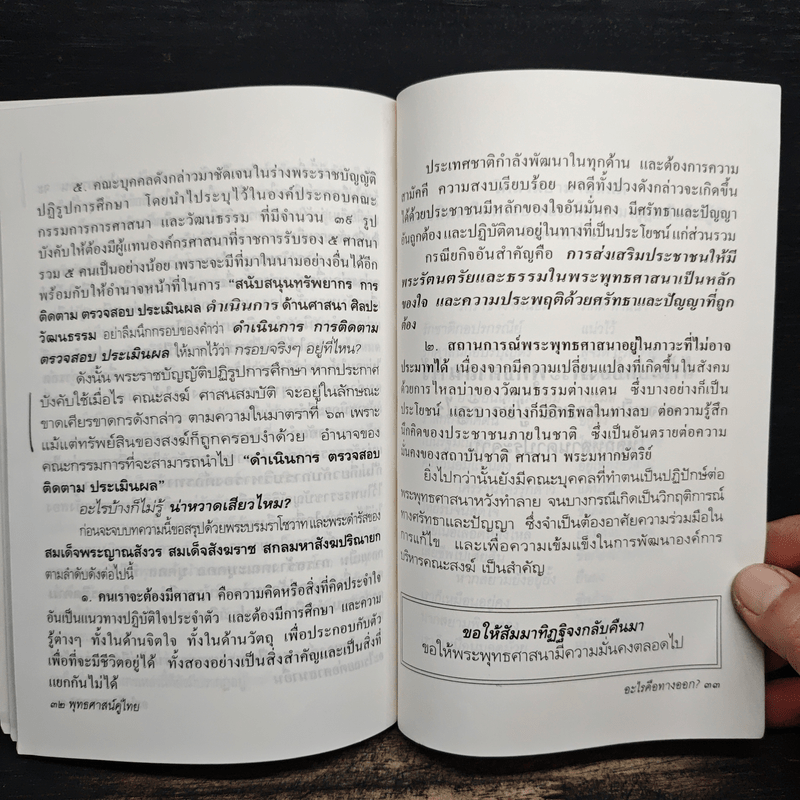 ๕. คณะบุคคลดังกล่าวมาชัดเจนในร่างพระราชบัญญัติ
ปฏิรูปการศึกษา โดยนำไประบุไว้ในองค์ประกอบคณะ
กรรมการการศาสนา และวัฒนธรรม ที่มีจำนวน ๓๙ รูป
บังคับให้ต้องมีผู้แทนองค์กรศาสนาที่ราชการรับรอง ๕ ศาสนา
รวม ๕ คนเป็นอย่างน้อย เพราะจะมีที่มาในนามอย่างอื่นได้อีก
พร้อมกับให้อำนาจหน้าที่ในการ "สนับสนุนทรัพยากร การ
ติดตาม ตรวจสอบ ประเมินผล ดำเนินการ ด้านศาสนา ศิลปะ
วัฒนธรรม อย่าลืมนึกกรอบของคำว่า ดำเนินการ การติดตาม
ตรวจสอบ ประเมินผล ให้มากไว้ว่า กรอบจริงๆ อยู่ที่ไหน?
ดังนั้น พระราชบัญญัติปฏิรูปการศึกษา หากประกาศ
บังคับใช้เมื่อไร คณะสงฆ์ ศาสนสมบัติ จะอยู่ในลักษณะ
ขาดเศียรขาดกรดังกล่าว ตามความในมาตราที่ ๖๓ เพราะ
แม้แต่ทรัพย์สินของสงฆ์ก็ถูกครอบงำด้วย อำนาจของ
คณะกรรมการที่จะสามารถนำไป "ดำเนินการ ตรวจสอบ
ติดตาม ประเมินผล"
อะไรบ้างก็ไม่รู้ น่าหวาดเสียวไหม?
ก่อนจะจบบทความนี้ขอสรุปด้วยพระบรมราโชวาท และพระดำรัสของ
สมเด็จพระญาณสังวร สมเด็จสังฆราช สกลมหาสังฆปริณายก
ตามลำดับดังต่อไปนี้
๑. คนเราจะต้องมีศาสนา คือความคิดหรือสิ่งที่คิดประจำใจ
อันเป็นแนวทางปฏิบัติใจประจำตัว และต้องมีการศึกษา และความ
รู้ต่างๆ ทั้งในด้านจิตใจ ทั้งในด้านวัตถุ เพื่อประกอบกับตัว
เพื่อที่จะมีชีวิตอยู่ได้ ทั้งสองอย่างเป็นสิ่งสำคัญและเป็นสิ่งที่
แยกกันไม่ได้
๓๒ พุทธศาสน์คู่ไทย
ประเทศชาติกำลังพัฒนาในทุกด้าน และต้องการความ
สามัคคี ความสงบเรียบร้อย ผลดีทั้งปวงดังกล่าวจะเกิดขึ้น
ได้ด้วยประชาชนมีหลักของใจอันมั่นคง มีศรัทธาและปัญญา
อันถูกต้อง และปฏิบัติตนอยู่ในทางที่เป็นประโยชน์แก่ส่วนรวม
กรณียกิจอันสำคัญคือ การส่งเสริมประชาชนให้มี
พระรัตนตรัยและธรรมในพระพุทธศาสนาเป็นหลัก
ของใจ และความประพฤติด้วยศรัทธาและปัญญาที่ถูก
ต้อง
๒. สถานการณ์พระพุทธศาสนาอยู่ในภาวะที่ไม่อาจ
ประมาทได้ เนื่องจากมีความเปลี่ยนแปลงที่เกิดขึ้นในสังคม
ด้วยการไหลบ่าของวัฒนธรรมต่างแดน ซึ่งบางอย่างก็เป็น
ประโยชน์ และบางอย่างก็มีอิทธิพลในทางลบ ต่อความรู้สึก
นึกคิดของประชาชนภายในชาติ ซึ่งเป็นอันตรายต่อความ
มั่นคงของสถาบันชาติ ศาสนา พระมหากษัตริย์
ยิ่งไปกว่านั้นยังมีคณะบุคคลที่ทำตนเป็นปฏิปักษ์ต่อ
พระพุทธศาสนาหวังทำลาย จนบางกรณีเกิดเป็นวิกฤติการณ์
ทางศรัทธาและปัญญา ซึ่งจำเป็นต้องอาศัยความร่วมมือใน
การแก้ไข และเพื่อความเข้มแข็งในการพัฒนาองค์การ
บริหารคณะสงฆ์ เป็นสำคัญ
ขอให้สัมมาทิฏฐิจงกลับคืนมา
ขอให้พระพุทธศาสนามีความมั่นคงตลอดไป
อะไรคือทางออก? ๓๓